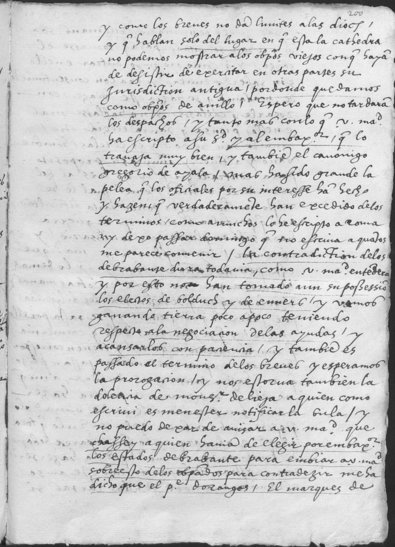 200
y como los breues no dan limites a las dioces̃ /
y q̃ hablan solo del lugar en q̃ esta la cathedra
no podemos mostrar a los obpõs viejos con q̃ hayã
de desistir de exercitar en otras partes su
Jurisdiction antigua / por donde quedamos
como obpõs de anillo / Espero que no tardara
los despachos / y tanto mas con lo q̃ v. mᵃ.
ha escripto a su S.ᵈ y al embaxᵒʳ q̃ lo
trauaja muy bien / y tambien el canonigo
gregorio de ayala / mas ha sido grande la
pelea q̃ los oficiales por su interesse hã hecho
y hazen q̃ verdaderamẽte han excedido de los
terminos / como a muchos lo he escripto a Roma
y de xo passar q̃ no escriua a quantos
me parece conuenir / la contradiction de los
de brabante dura todauia, como v. mᵃ. entẽdera
y por esto no han tomado aun su possessiõ
los electos de bolduch y de enuers / y vamos
ganando tierra poco a poco teniendo
respecto a la negociacion de las ayudas / y
a cansarlos con paciencia / y tambiẽ es
passado el termino de los breues y esperamos
la prorogacion / y nos estorua tambien la
dolẽcia de monsᵣ de lieja a quien como
escriui es menester notificar la bula / y
no puedo dexar de auisar a v. mᵃ. que
a quien hauiã de elegir por embaxᵒʳ
los estados de brabante para embiar a v. mᵃ
sobre esto de los obispados para contradezir me ha
dicho que el p.ᵉ doranges / El marques de